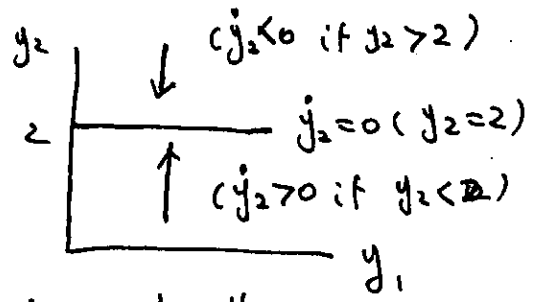 y₂ (ẏ₂<0 if y₂>2)
2 ẏ₂=0 (y₂=2)
(ẏ₂>0 if y₂<2)
y₁